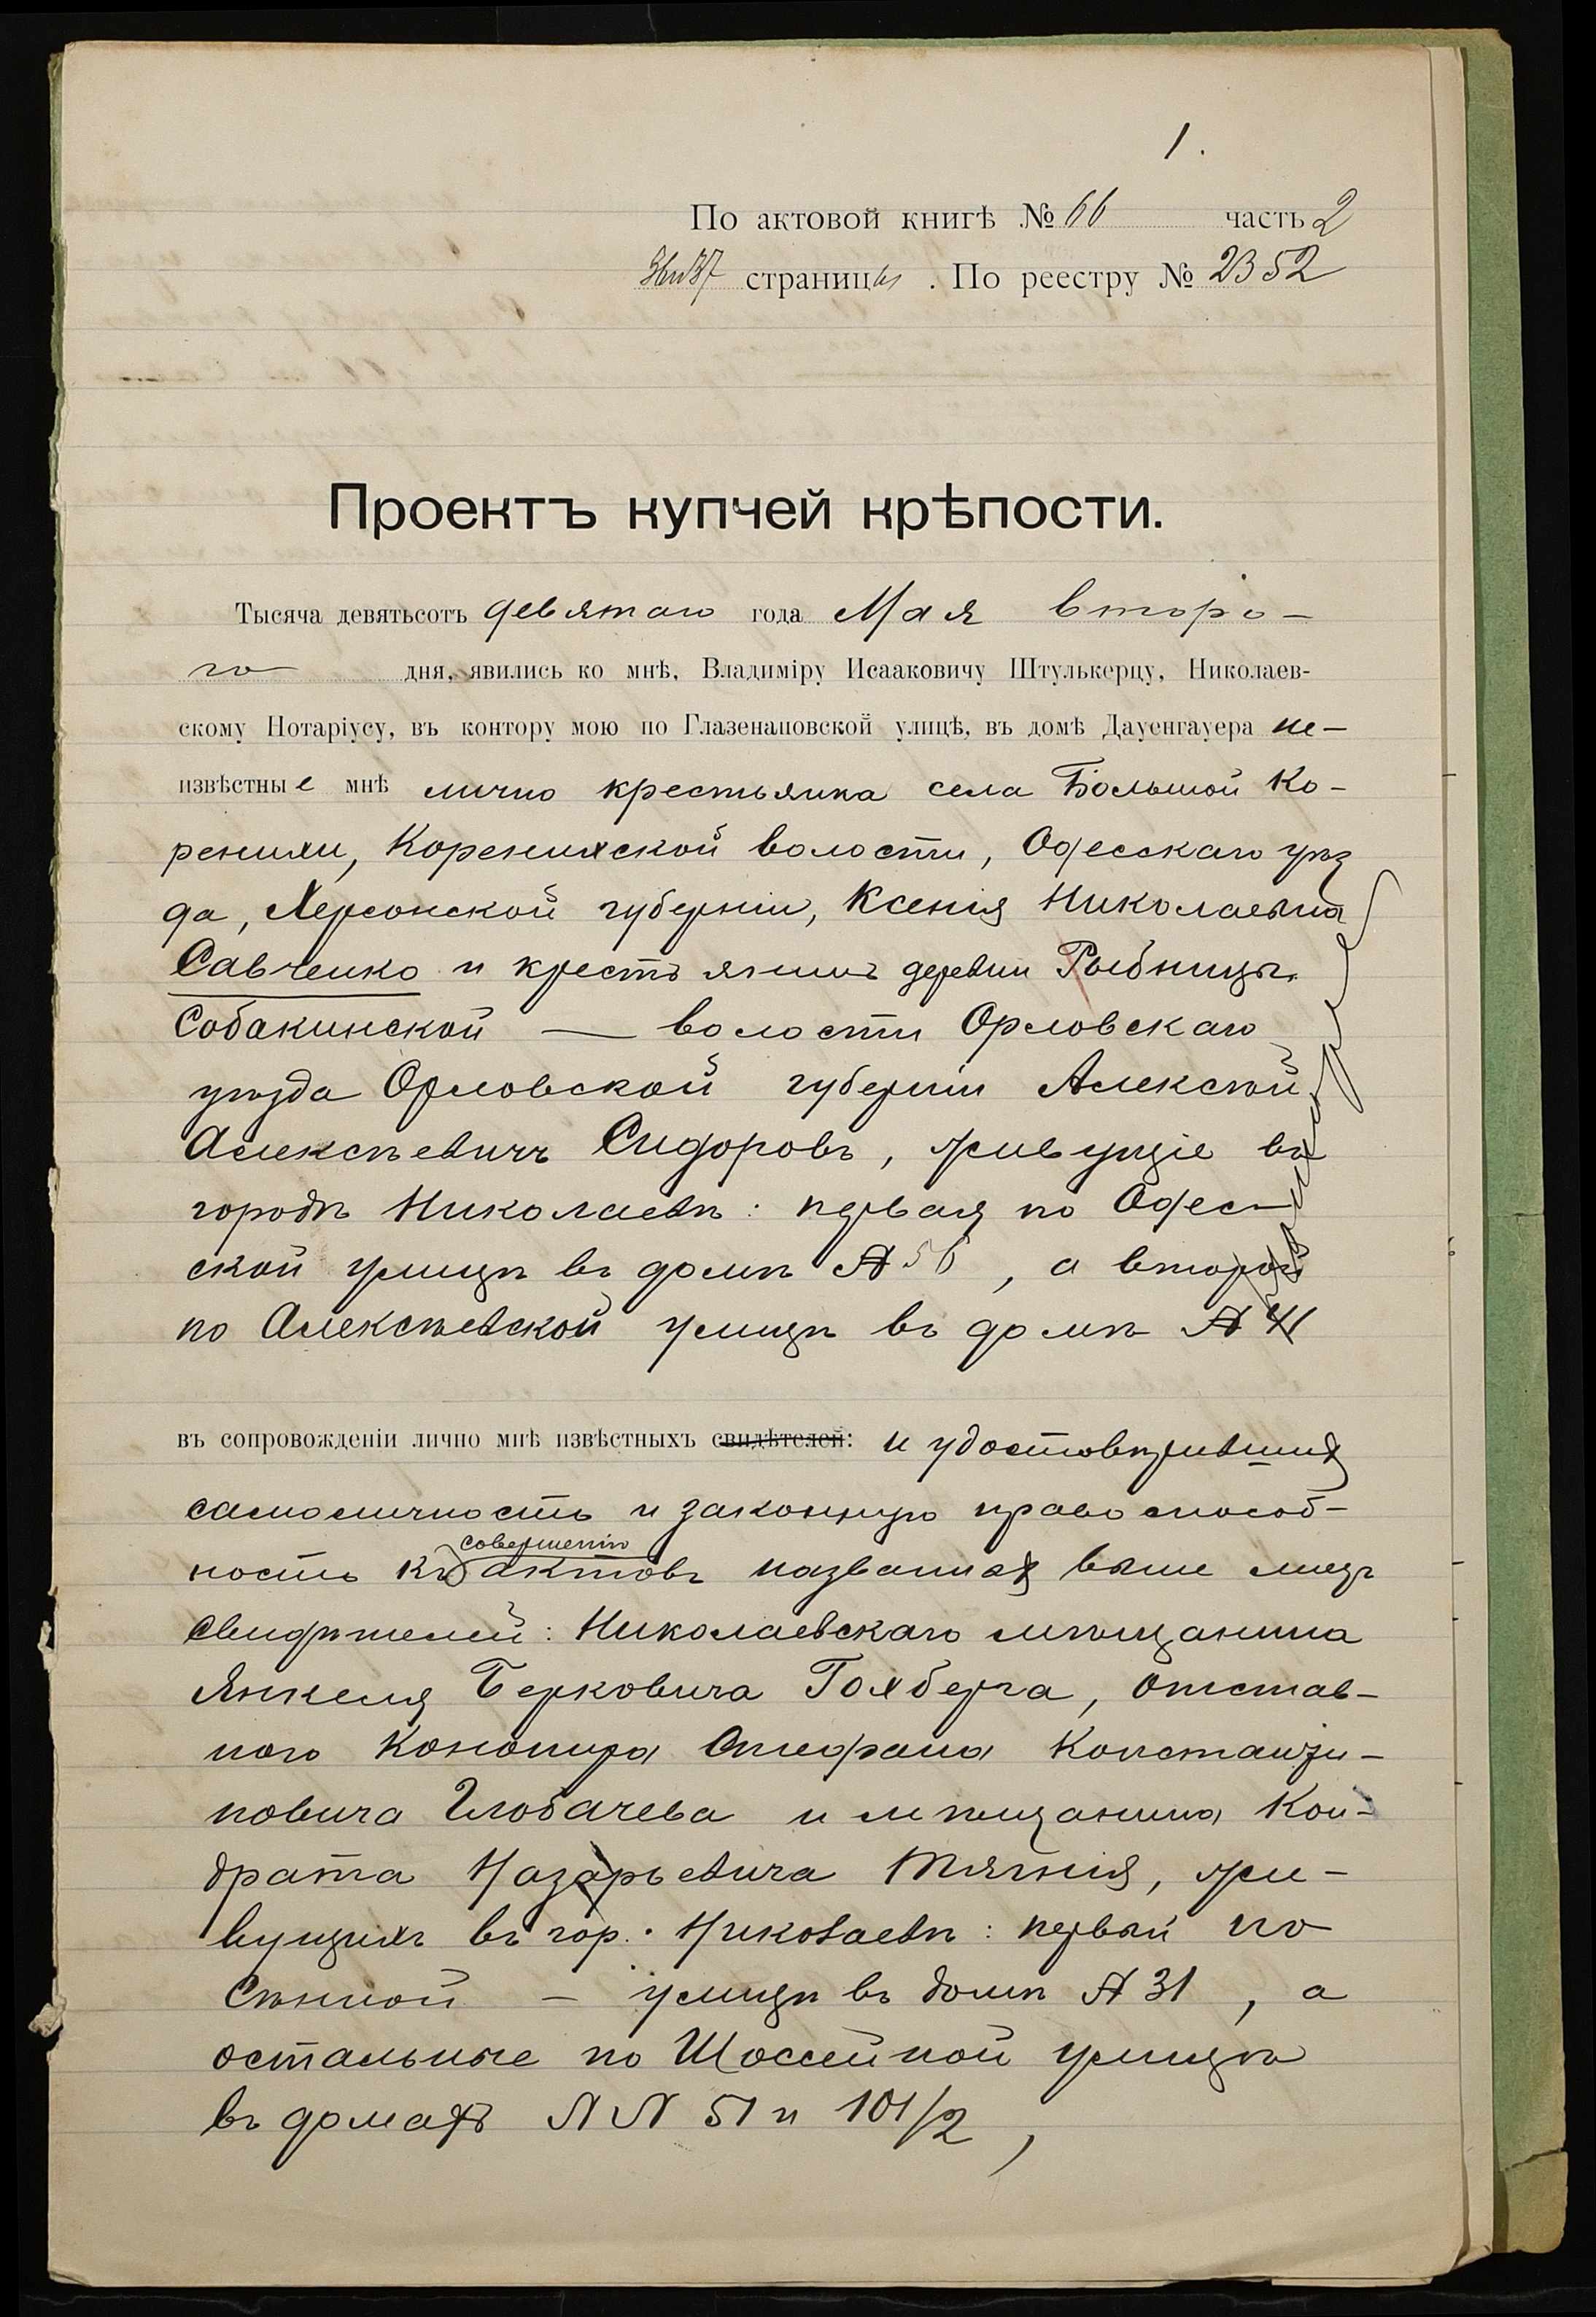 1.
По актовой книгѣ № 66 часть 2
36 и 37 страницы. По реестру № 2352
Проектъ купчей крѣпости.
Тысяча девятьсотъ девятаго года Мая второ-
го дня, явились ко мнѣ, Владиміру Исааковичу Штулькерцу, Николаев-
скому Нотаріусу, въ контору мою по Глазенаповской улицѣ, въ домѣ Дауенгауера не-
извѣстные мнѣ лично крестьянка села Большой Ко-
ренихи, Коренихской волости, Одесскаго уѣз
да, Херсонской губерніи, Ксенія Николаевна
Савченко и крестьянинъ деревни Рыбницы
Собакинской — волости Орловскаго
уѣзда Орловской губерніи Алексѣй
Алексѣевичъ Сидоровъ, живущіе въ
городѣ Николаевѣ: первая по Одес-
ской улицѣ въ домѣ № 56, а второй
по Алексѣевской улицѣ въ домѣ № 41
въ сопровожденіи лично мнѣ извѣстныхъ свидѣтелей: и удостовѣрившихъ
самоличность и законную правоспособ-
совершенію
ность къ актовъ названныхъ выше лицъ
свидѣтелей: Николаевскаго мѣщанина
Янкеля Берковича Гохберга, отстав-
ного Кононира Стефана Константи-
новича Глобачева и мѣщанина Кон-
драта Назарьевича Тягнія, жи-
вущихъ въ гор. Николаевѣ: первый по
Сѣнной — улицѣ въ домѣ № 31, а
остальные по Шоссейной улицѣ
въ домахъ №№ 51 и 101/2,